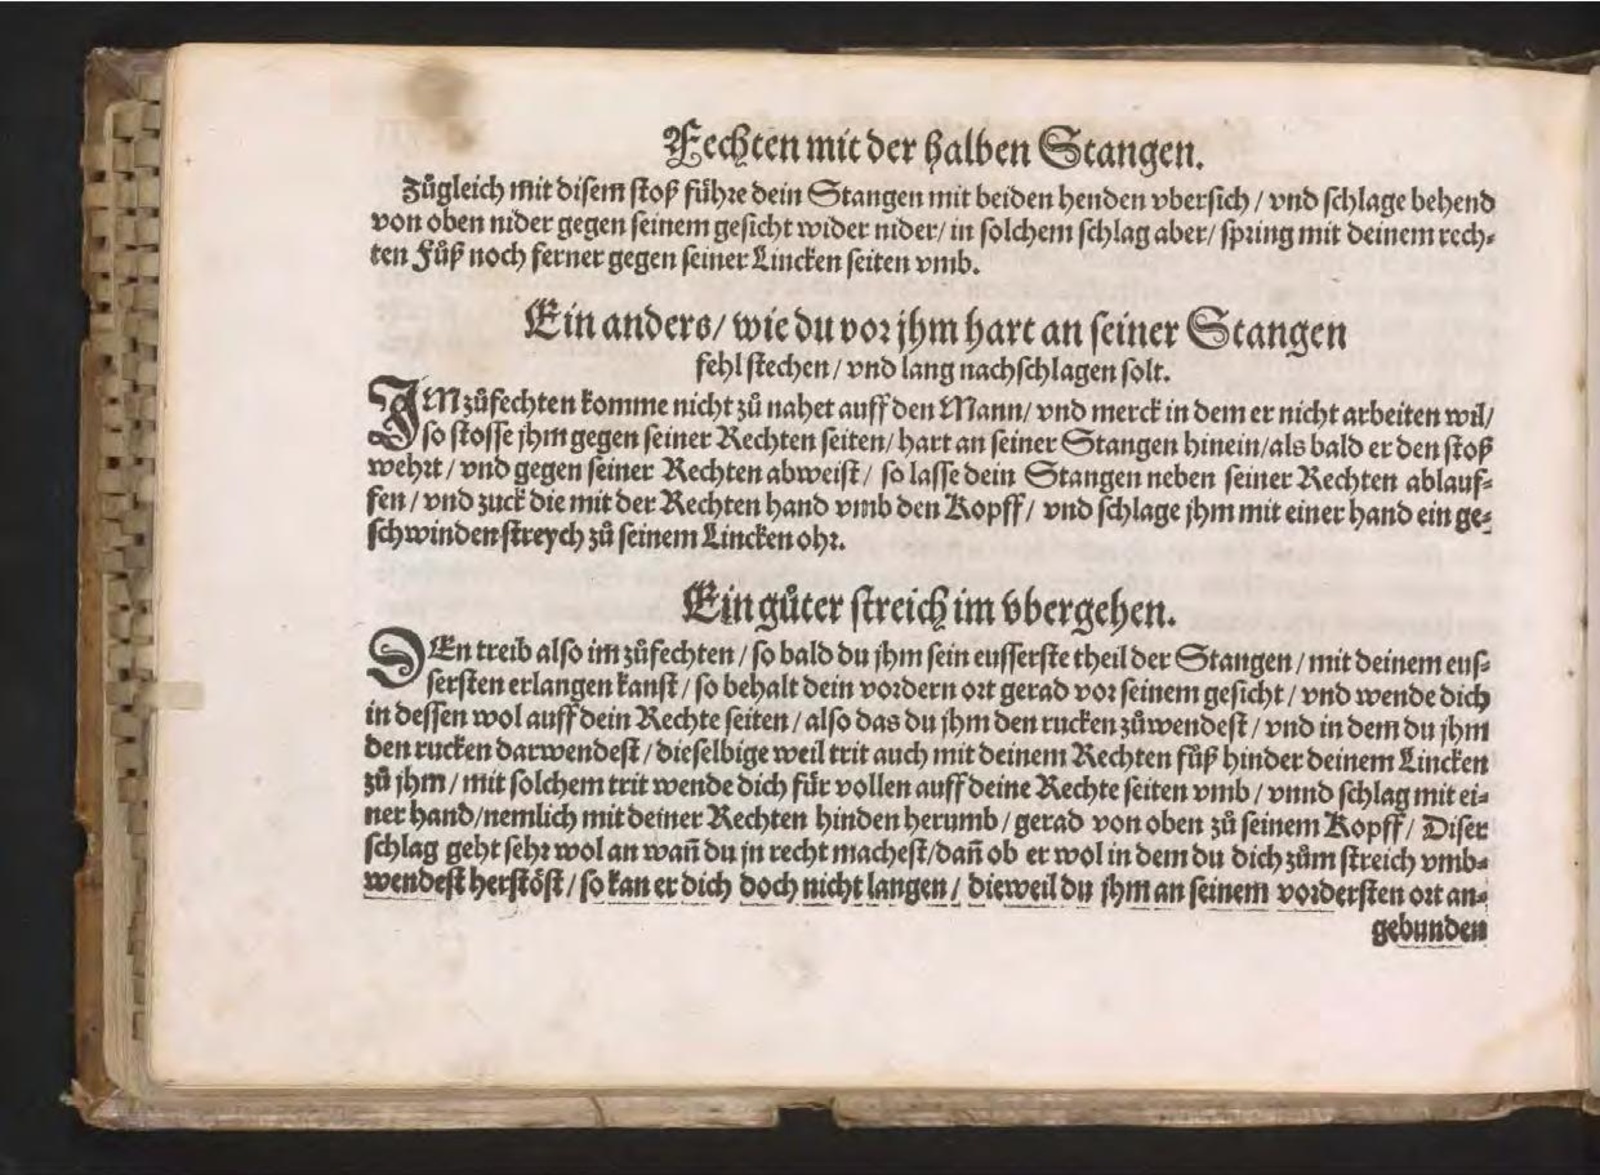 Fechten mit der halben Stangen.
Zůgleich mit disem stoß führe dein Stangen mit beiden henden vbersich / vnd schlage behend
von oben nider gegen seinem gesicht wider nider / in solchem schlag aber / spring mit deinem rech⸗
ten Fůß noch ferner gegen seiner Lincken seiten vmb.
Ein anders / wie du vor jhm hart an seiner Stangen
fehl stechen / vnd lang nachschlagen solt.
IM zůfechten komme nicht zů nahet auff den Mann / vnd merck in dem er nicht arbeiten wil /
so stosse jhm gegen seiner Rechten seiten / hart an seiner Stangen hinein / als bald er den stoß
wehrt / vnd gegen seiner Rechten abweist / so lasse dein Stangen neben seiner Rechten ablauf⸗
fen / vnd zuck die mit der Rechten hand vmb den Kopff / vnd schlage jhm mit einer hand ein ge⸗
schwinden streych zů seinem Lincken ohr.
Ein gůter streich im vbergehen.
DEn treib also im zůfechten / so bald du jhm sein eusserste theil der Stangen / mit deinem eus⸗
sersten erlangen kanst / so behalt dein vordern ort gerad vor seinem gesicht / vnd wende dich
in dessen wol auff dein Rechte seiten / also das du jhm den rucken zůwendest / vnd in dem du jhm
den rucken darwendest / dieselbige weil trit auch mit deinem Rechten fůß hinder deinem Lincken
zů jhm / mit solchem trit wende dich für vollen auff deine Rechte seiten vmb / vnnd schlag mit ei⸗
ner hand / nemlich mit deiner Rechten hinden herumb / gerad von oben zů seinem Kopff / Diser
schlag geht sehr wol an wañ du jn recht machest / dañ ob er wol in dem du dich zům streich vmb⸗
wendest herstöst / so kan er dich doch nicht langen / dieweil du jhm an seinem vordersten ort an⸗
gebunden